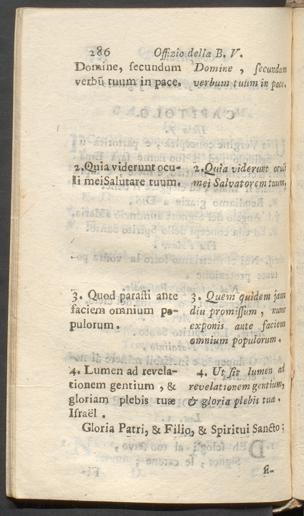 286 Offizio della B. V.
Domine, secundum
verbũ tuum in pace.
2. Quia viderunt ocu-
li mei Salutare tuum.
3. Quod parasti ante
faciem omnium po-
pulorum.
4. Lumen ad revela-
tionem gentium, &
gloriam plebis tuæ
Israël.
Domine, secundum
verbum tuum in pace.
2. Quia viderunt oculi
mei Salvatorem tuum,
3. Quem quidem jam
diu promissum, nunc
exponis ante faciem
omnium populorum.
4. Ut sit lumen ad
revelationem gentium,
& gloria plebis tuæ.
Gloria Patri, & Filio, & Spiritui Sancto;